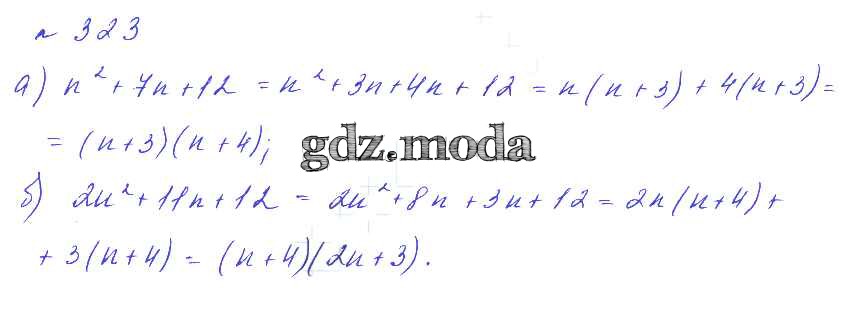 № 323
а) n² + 7n + 12 = n² + 3n + 4n + 12 = n(n + 3) + 4(n + 3) =
= (n + 3)(n + 4);
gdz.moda
б) 2n² + 11n + 12 = 2n² + 8n + 3n + 12 = 2n(n + 4) +
+ 3(n + 4) = (n + 4)(2n + 3).